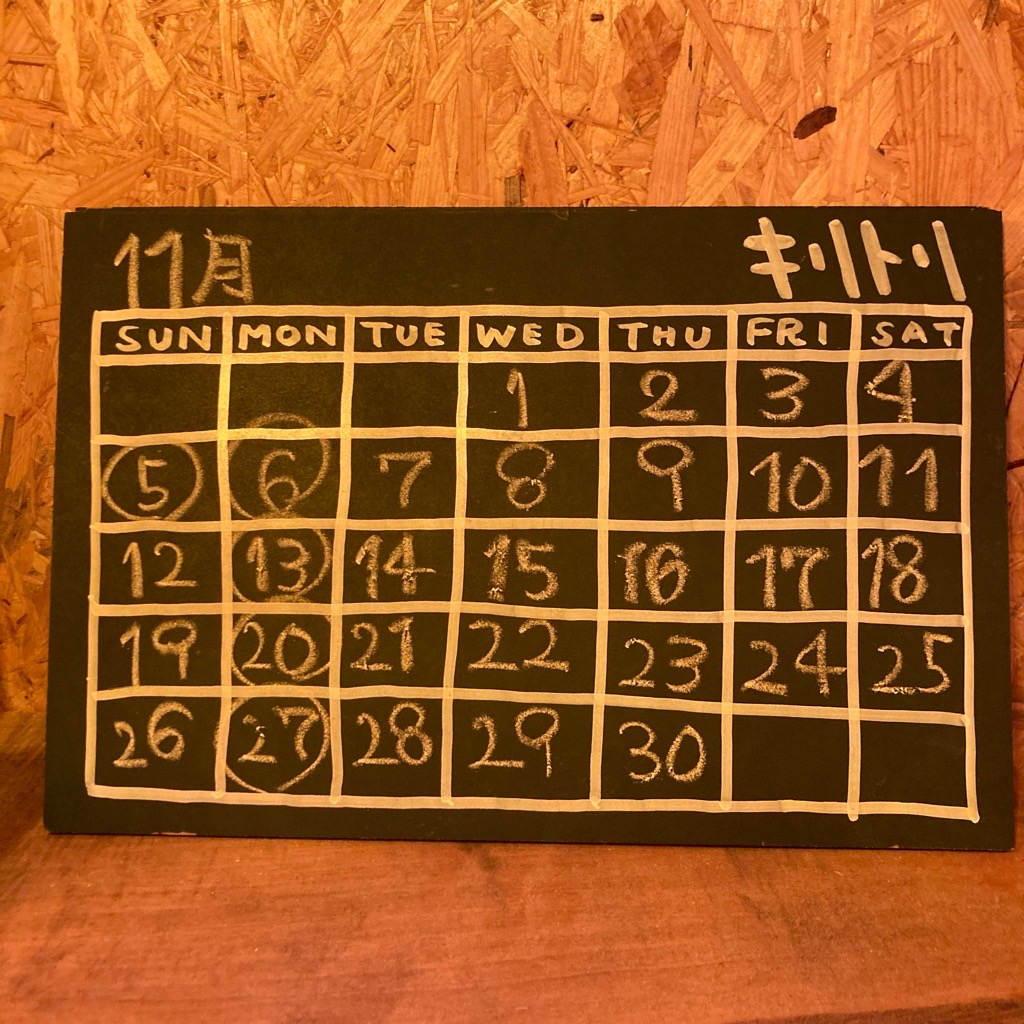 11月 キリトリ
SUN MON TUE WED THU FRI SAT
1 2 3 4
5 6 7 8 9 10 11
12 13 14 15 16 17 18
19 20 21 22 23 24 25
26 27 28 29 30